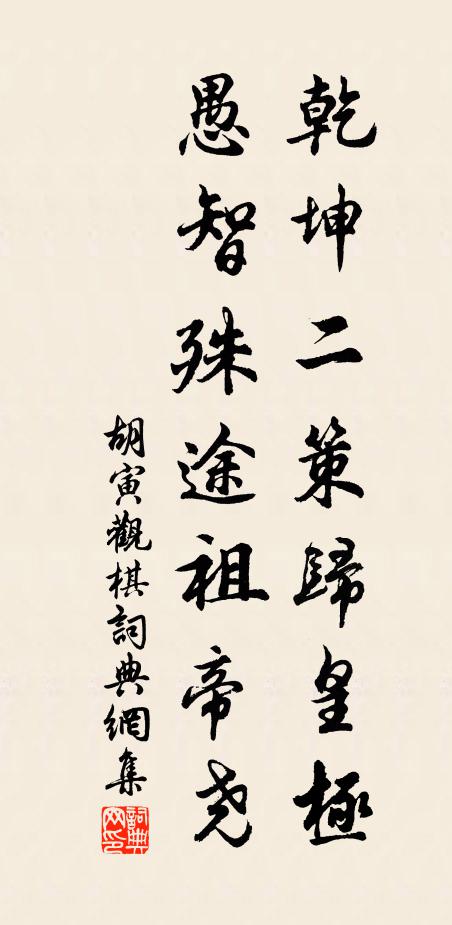 乾坤二策歸皇極
愚智殊途祖帝尧
胡寅觀棋詞典網集
詞典
网印